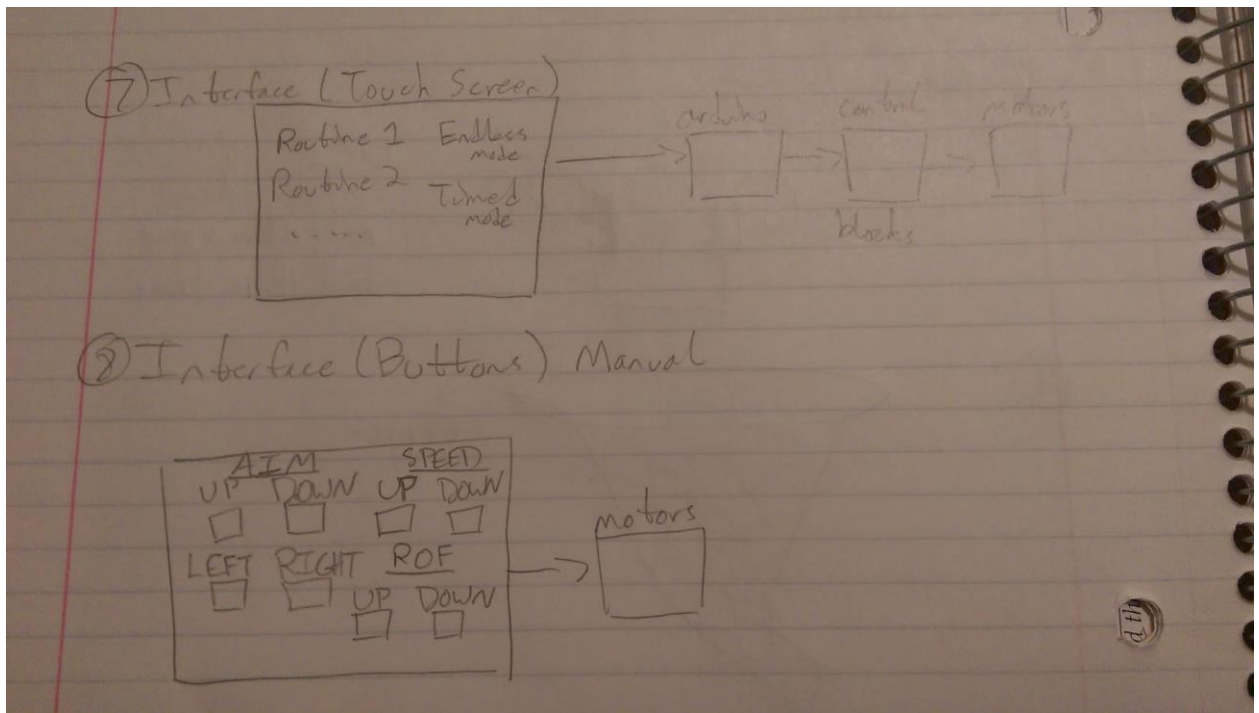 ⑦ Interface (Touch Screen)
Routine 1 Endless mode
Routine 2 Timed mode
.....
arduino control motors
blocks
⑧ Interface (Buttons) Manual
AIM SPEED
UP DOWN UP DOWN
LEFT RIGHT ROF
UP DOWN
motors
d th